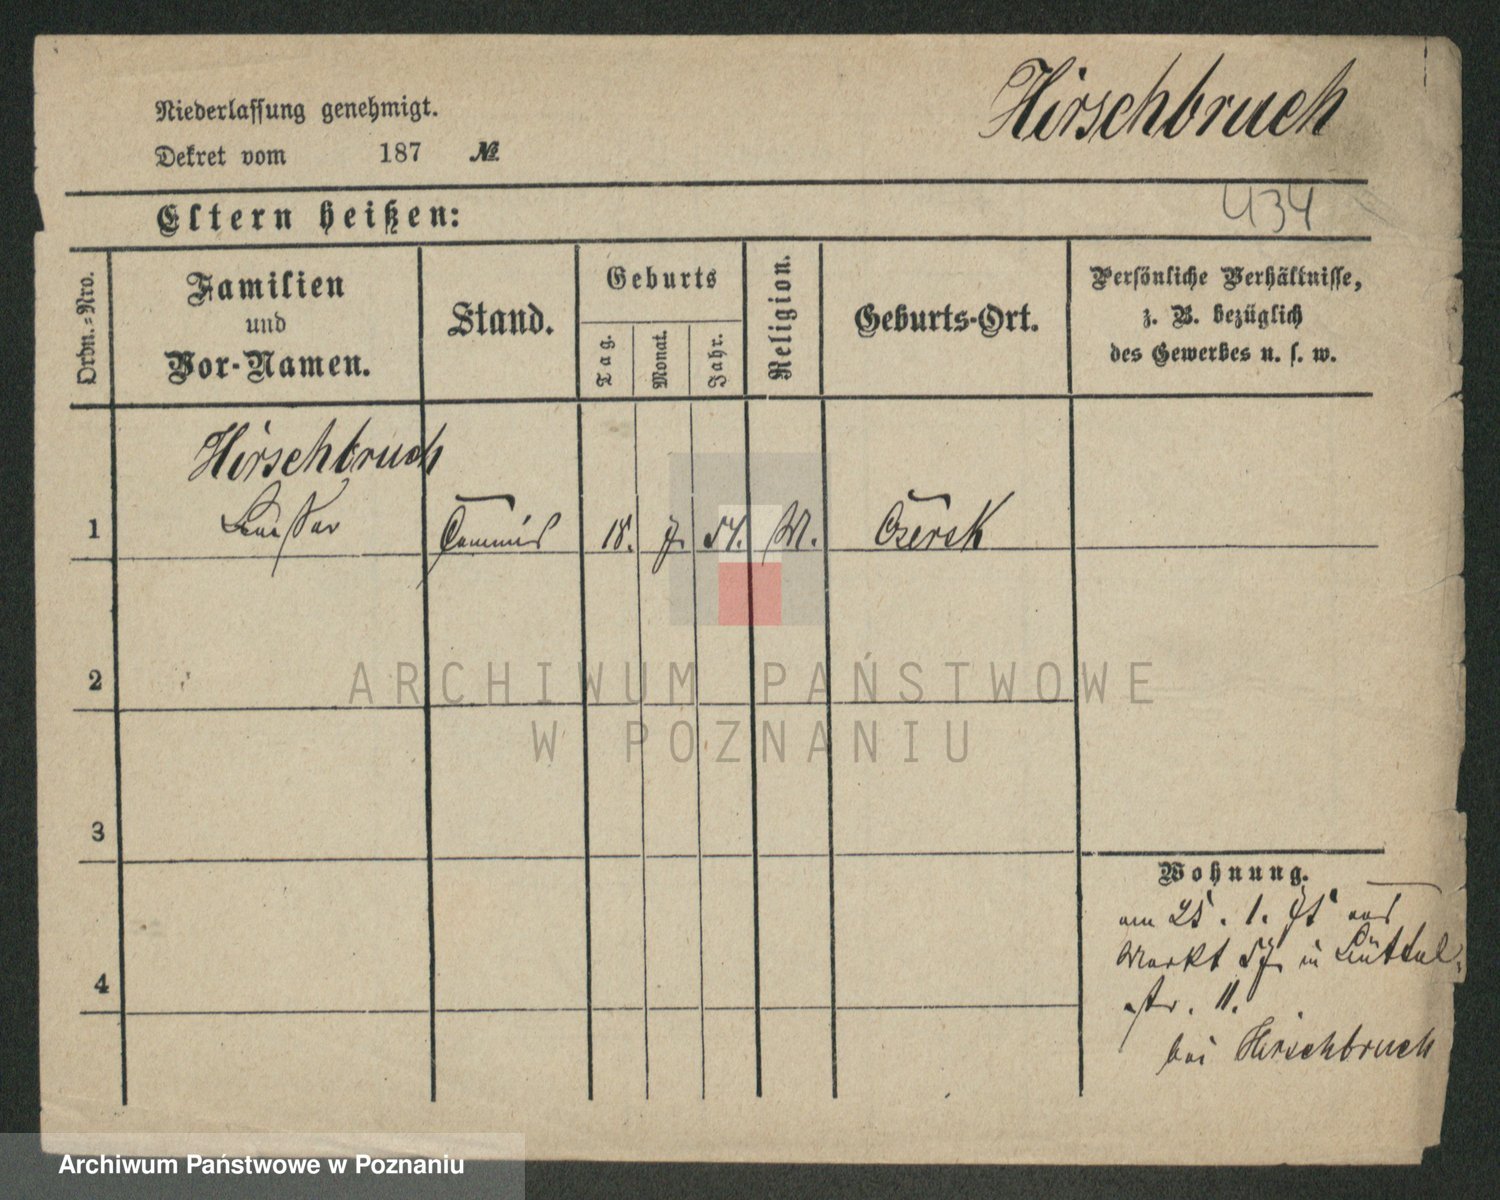 Hirschbruch
Niederlassung genehmigt.
Dekret vom 187 №
434
Eltern heißen:
Ordn.-Nro.
Familien
und
Vor-Namen.
Stand.
Geburts
Tag.
Monat.
Jahr.
Religion.
Geburts-Ort.
Persönliche Verhältnisse,
z. B. bezüglich
des Gewerbes u. s. w.
Hirschbruch
1 Commis 18. 7. 54. M. Czersk
2
3
4
Wohnung.
am 25. 1. 75 aus
Markt 57 in
str. 11.
bei Hirschbruch
ARCHIWUM PAŃSTWOWE
W POZNANIU
Archiwum Państwowe w Poznaniu